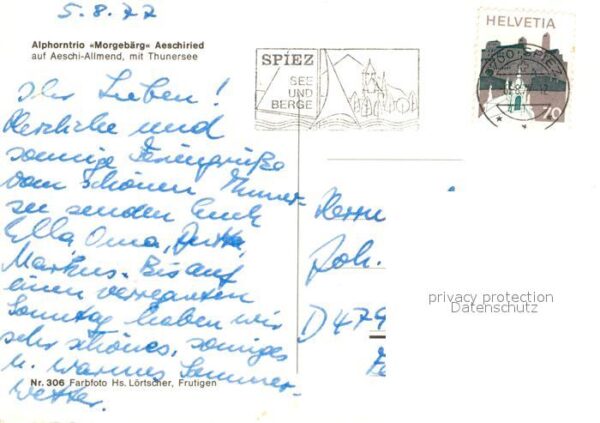 5.8.77
Alphorntrio «Morgebärg» Aeschiried
auf Aeschi-Allmend, mit Thunersee
SPIEZ
SEE
UND
BERGE
HELVETIA
3700 SPIEZ
70
Ihr Lieben!
Herzliche und
sonnige Feriengrüße
vom schönen Thuner-
see senden Euch
Ella, Oma, Jutta,
Markus. Bis auf
einen verregneten
Sonntag haben wir
sehr schönes, sonniges
u. warmes Sommer-
wetter.
Herrn
Joh.
D 479
privacy protection
Datenschutz
Nr. 306 Farbfoto Hs. Lörtscher, Frutigen